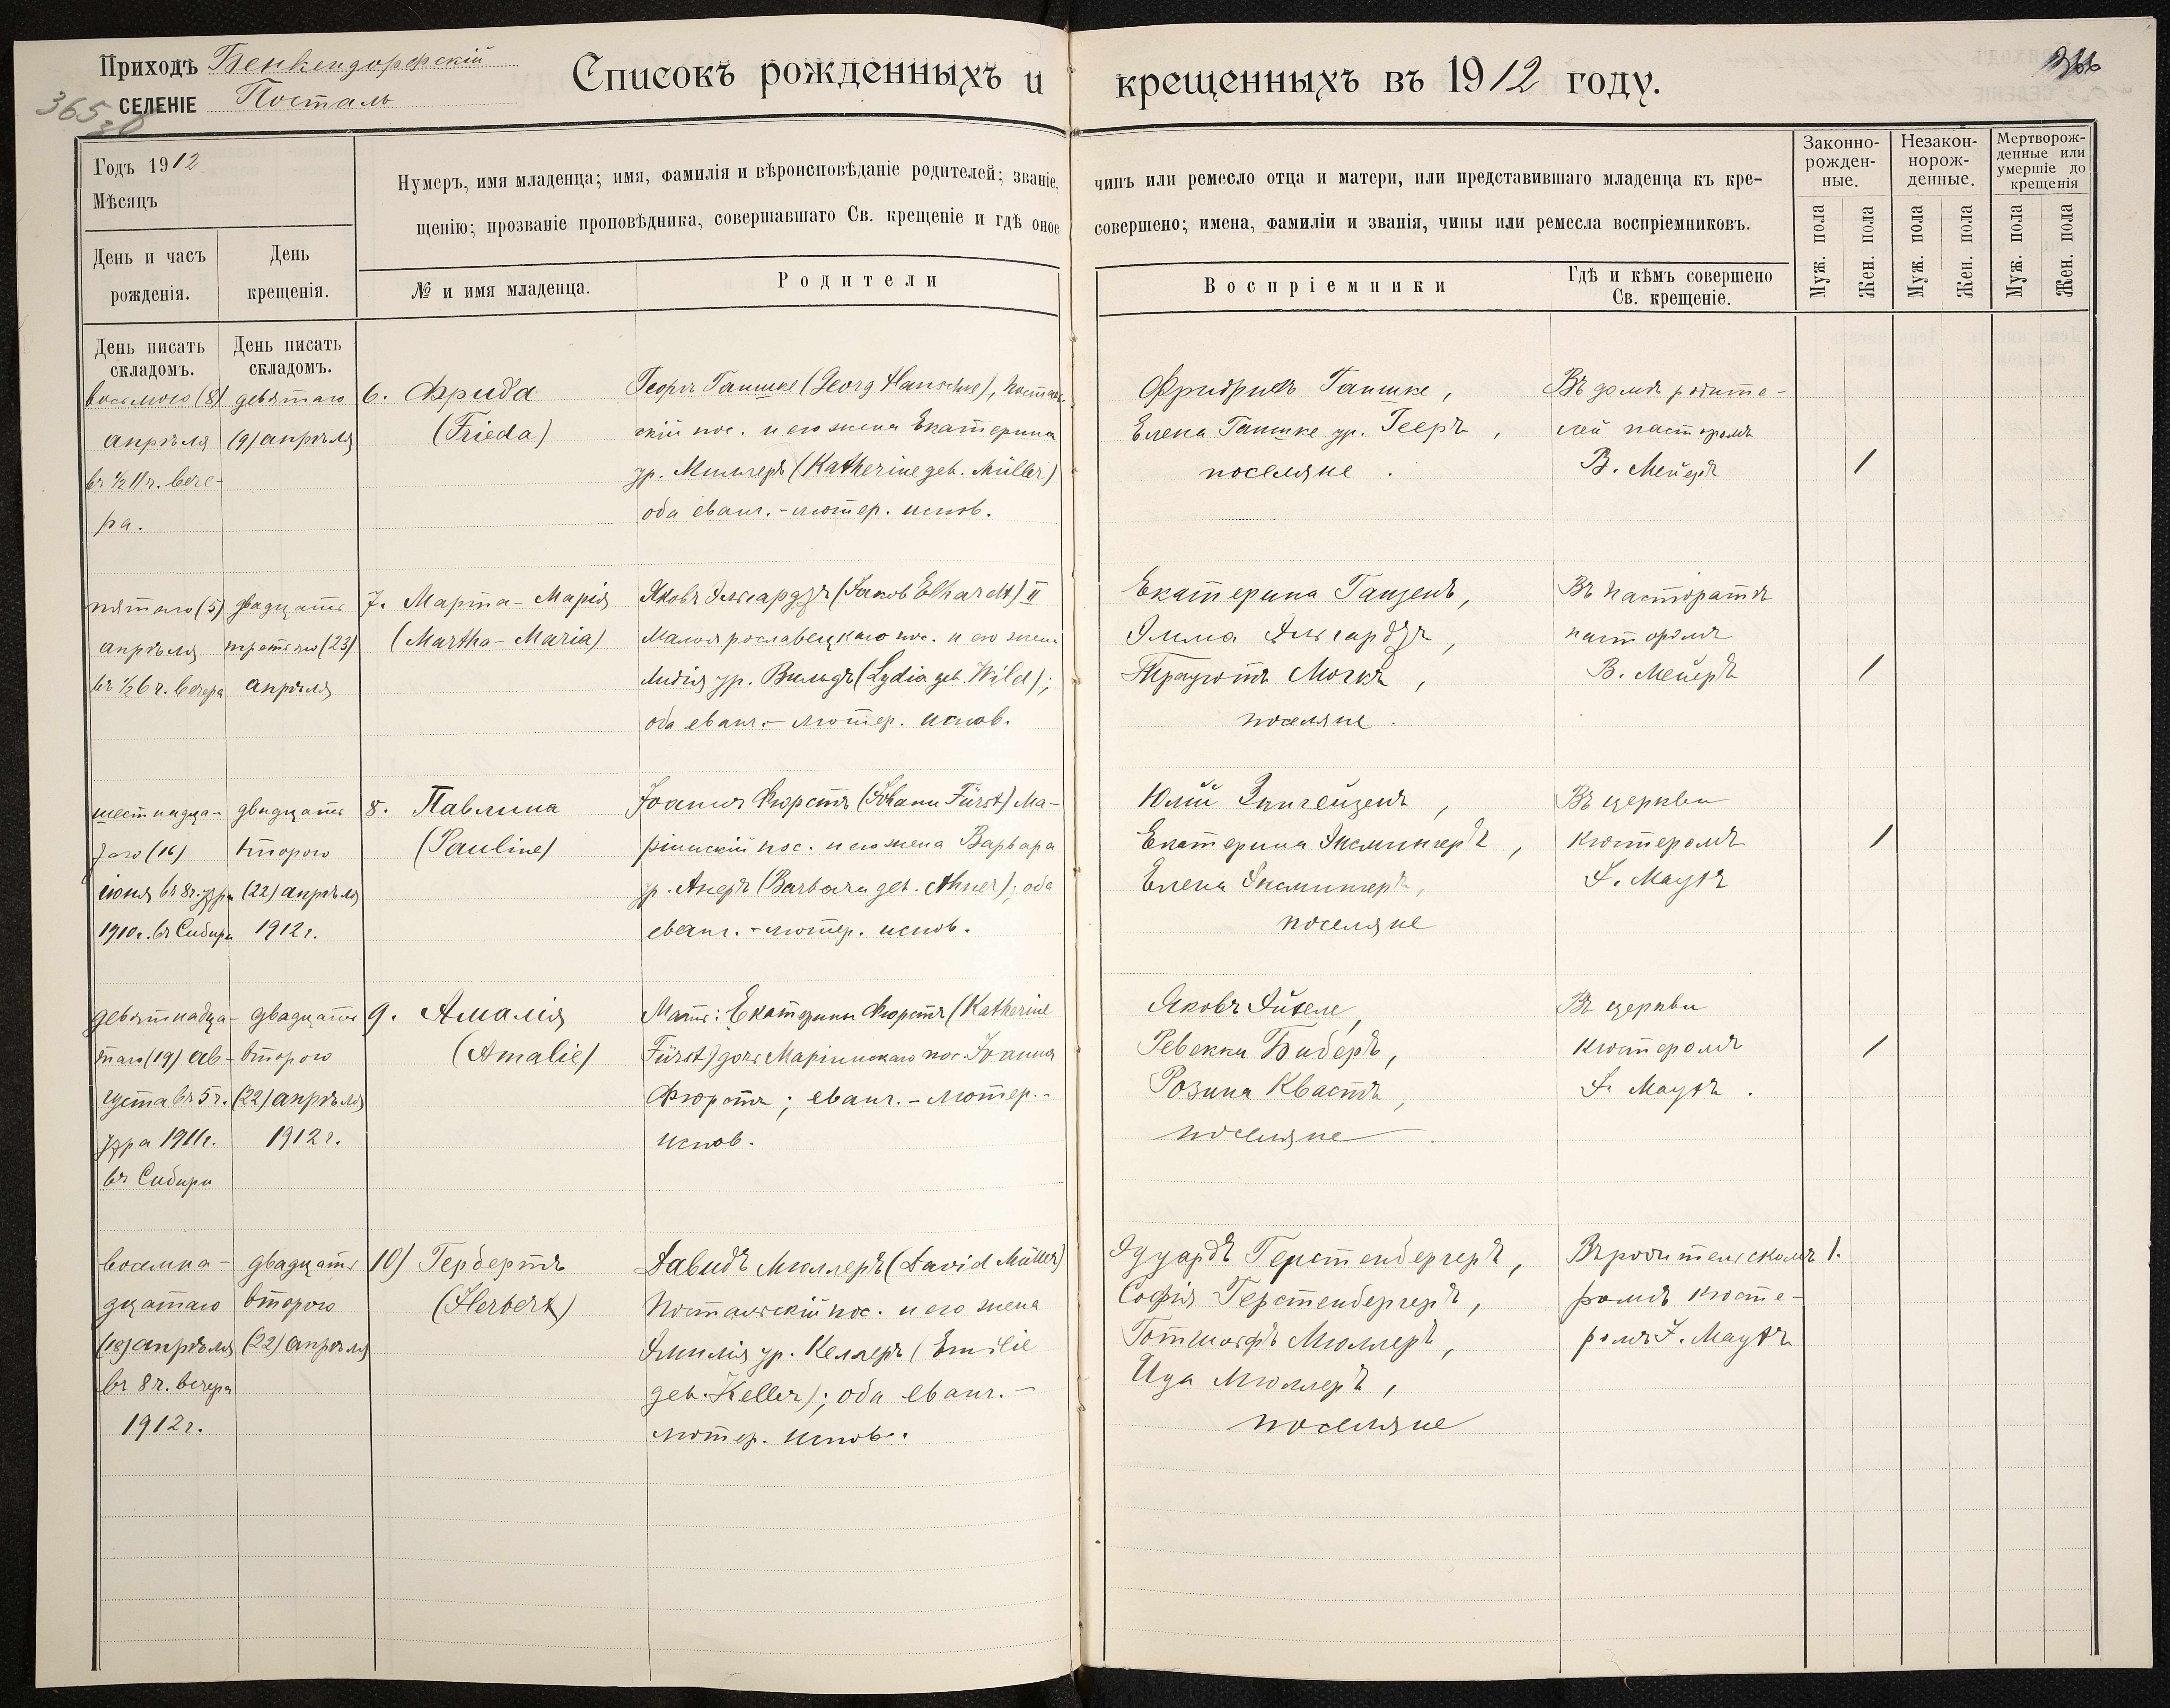 Приходъ Бенкендорфскій
365 СЕЛЕНІЕ Посталь
Списокъ рожденныхъ и крещенныхъ въ 1912 году.
366
Годъ 1912
Мѣсяцъ
День и часъ рожденія.
День крещенія.
Нумеръ, имя младенца; имя, фамилія и вѣроисповѣданіе родителей; званіе, чинъ или ремесло отца и матери, или представившаго младенца къ кре-
щенію; прозваніе проповѣдника, совершавшаго Св. крещеніе и гдѣ оное совершено; имена, фамиліи и званія, чины или ремесла воспріемниковъ.
№ и имя младенца.
Родители
Воспріемники
Гдѣ и кѣмъ совершено
Св. крещеніе.
Законно-
рожден-
ные.
Незакон-
норож-
денные.
Мертворож-
денные или
умершіе до
крещенія
Муж. пола
Жен. пола
Муж. пола
Жен. пола
Муж. пола
Жен. пола
День писать
складомъ.
День писать
складомъ.
восьмого (8)
апрѣля
въ ½ 11 ч. вече-
ра.
девятаго
(9) апрѣля
6. Фрида
(Frieda)
Георгъ Ганшке (Georg Hanschke), Посталь-
скій пос. и его жена Екатерина
ур. Миллеръ (Katherine geb. Müller)
оба еванг.-лютер. испов.
Фридрихъ Ганшке,
Елена Ганшке ур. Гееръ,
поселяне.
Въ домѣ родите-
лей пасторомъ
В. Мейеръ
1
пятаго (5)
апрѣля
въ ½ 6 ч. вечера
двадцать
третьяго (23)
апрѣля
7. Марта-Марія
(Martha-Maria)
Яковъ Эльгардтъ (Jakob Elhardt) II
Малоярославецкаго пос. и его жена
Лидія ур. Вильдъ (Lydia geb. Wild);
оба еванг.-лютер. испов.
Екатерина Ганзень,
Эмма Эльгардтъ,
Трауготъ Мочкъ,
поселяне.
Въ пасторатѣ
пасторомъ
В. Мейеръ
1
шестнадца-
таго (16)
іюня въ 8 ч. утра
1910 г. въ Сибири
двадцать
второго
(22) апрѣля
1912 г.
8. Павлина
(Pauline)
Іоаннъ Фюрстъ (Johann Fürst) Ма-
ріинскій пос. и его жена Варвара
ур. Анеръ (Barbara geb. Ahner); оба
еванг.-лютер. испов.
Юлій
Екатерина
Елена
поселяне
Въ церкви
кюстеромъ
Ф. Маутъ
1
девятнадца-
таго (19) ав-
густа въ 5 ч.
утра 1911 г.
въ Сибири
двадцать
второго
(22) апрѣля
1912 г.
9. Амалія
(Amalie)
Мать: Екатерина Фюрстъ (Katherine
Fürst) дочь Маріинскаго пос. Іоанна
Фюрста; еванг.-лютер.-
испов.
Яковъ Эйзеле,
Ревекка Биберъ,
Розина Квастъ,
поселяне.
Въ церкви
кюстеромъ
Ф. Маутъ.
1
восемна-
дцатаго
(18) апрѣля
въ 8 ч. вечера
1912 г.
двадцать
второго
(22) апрѣля
10) Гербертъ
(Herbert)
Давидъ Мюллеръ (David Müller)
Постальскій пос. и его жена
Эмилія ур. Келлеръ (Emilie
geb. Keller); оба еванг.-
лютер. испов.
Эдуардъ Герстенбергеръ,
Софія Герстенбергеръ,
Готлифъ Мюллеръ,
Ида Мюллеръ,
поселяне
Въ родительскомъ
домѣ кюсте-
ромъ Ф. Маутъ
1.